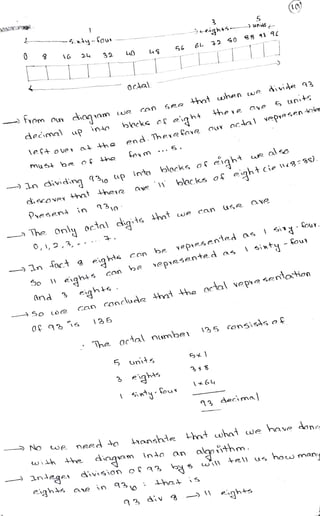 10
1 3 5
sixty-four eights units
0 8 16 24 32 40 48 56 64 72 80 88 93 96
octal
→ From our diagram we can see that when we divide 93
decimal up into blocks of eight there are 5 units
left over at the end. Therefore our octal representation
must be of the form ... 5.
→ In dividing 93₁₀ up into blocks of eight we also
discover that there are 11 blocks of eight (ie 11×8=88).
Present in 93₁₀.
→ The only octal digits that we can use are
0, 1, 2, 3, .... 7.
→ In fact 8 eights can be represented as 1 sixty-four.
So 11 eights can be represented as 1 sixty-four
and 3 eights.
→ So we can conclude that the octal representation
of 93 is 135
∴ The octal number 135 consists of
5 units 5×1
3 eights 3×8
1 sixty-four 1×64
93 decimal
→ No we need to translate that what we have done
with the diagram into an algorithm.
→ Integer division of 93 by 8 will tell us how many
eights are in 93₁₀ : that is
93 div 8 → 11 eights